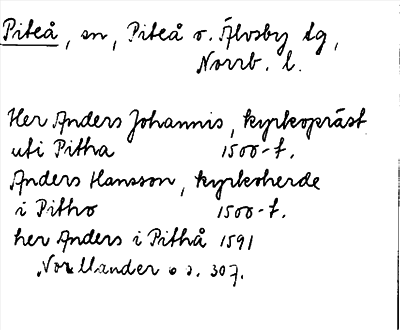 Piteå, sn, Piteå o. Älvsby tg,
Norrb. l.
Her Anders Johannis, kyrkopräst
uti Pitha 1500-t.
Anders Hansson, kyrkoherde
i Pitho 1500-t.
her Anders i Pithå 1591
Norrlander o s. 307.